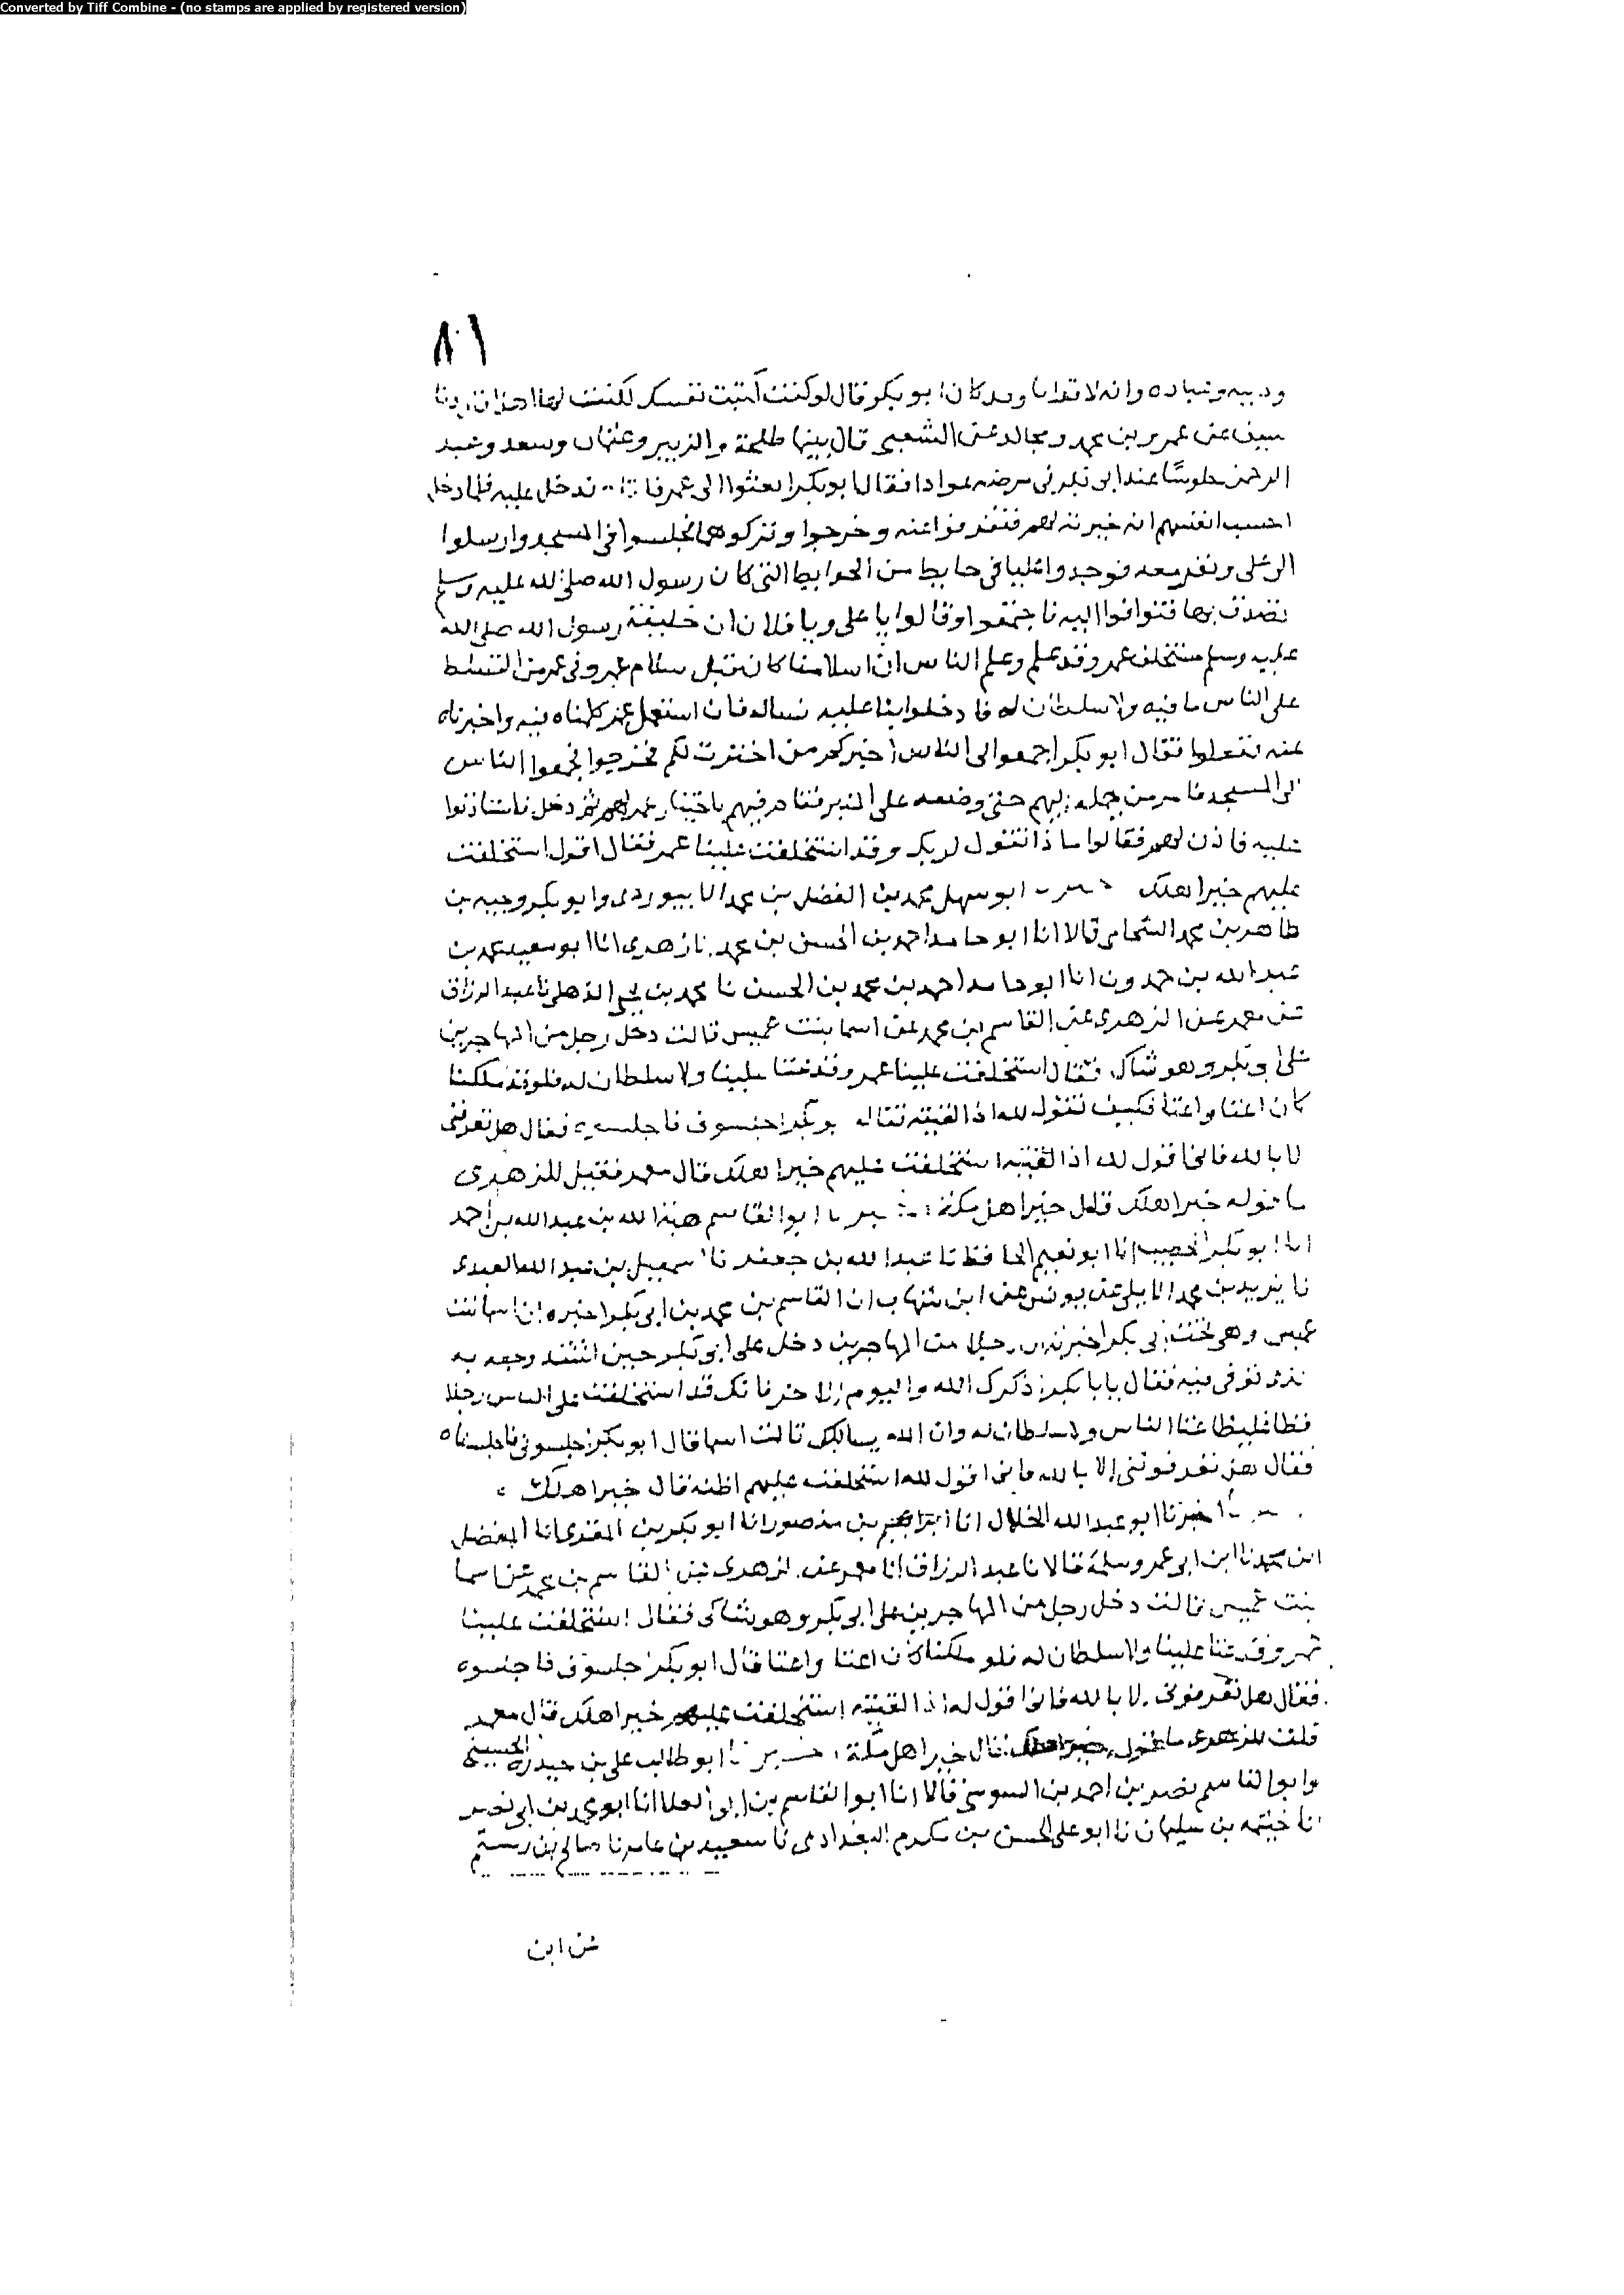 Converted by Tiff Combine - (no stamps are applied by registered version)
٨٠١
ابو بكر فقال لو كنت كتبت نفسك لكنت لها اهلا
سيف عن عمرو بن محمد ومجالد عن الشعبي قال بينا طلحة والزبير وعثمان وسعد وعبد
الرحمن جلوسا عند ابي بكر في مرضه عوادا فقال ابو بكر ابعثوا الى عمر فاتاه فدخل عليه فلما دخل
احست انفسهم انه خيرته لهم فتفرقوا عنه وخرجوا وتركوهما فجلسوا في المسجد وارسلوا
الى علي ونفر معه فوجدوا عليا في حايط من الحوايط التي كان رسول الله صلى الله عليه وسلم
تصدق بها فتوافوا اليه فاجتمعوا وقالوا يا علي ويا فلان ان خليفة رسول الله صلى الله
عليه وسلم مستخلف عمر وقد علم وعلم الناس ان اسلامنا كان قبل اسلام عمر وفي عمر من التسلط
على الناس ما فيه ولا سلطان له فادخلوا بنا عليه نساله فان استعمل عمر كلمناه فيه واخبرناه
عنه ففعلوا فقال ابو بكر اجمعوا لي الناس اخبركم من اخترت لكم فخرجوا فجمعوا الناس
الى المسجد فامر من يحمله اليهم حتى وضعه على المنبر فقام فيهم باختيار عمر لهم ثم دخل فاستاذنوا
عليه فاذن لهم فقالوا ماذا تقول لربك وقد استخلفت علينا عمر فقال اقول استخلفت
عليهم خير اهلك ابو سهل محمد بن الفضل بن محمد الابيوردي وابو بكر وجيه بن
طاهر بن محمد الشحامي قالا انا ابو حامد احمد بن الحسن بن محمد الازهري انا ابو سعيد محمد بن
عبد الله بن حمدون انا ابو حامد احمد بن محمد بن الحسن نا محمد بن يحيى الذهلي نا عبد الرزاق
عن معمر عن الزهري عن القاسم بن محمد عن اسما بنت عميس قالت دخل رجل من المهاجرين
على ابي بكر وهو شاك فقال استخلفت علينا عمر وقد عتا علينا ولا سلطان له فلو قد ملكنا
كان اعتا واعتا فكيف تقول لله اذا لقيته فقال ابو بكر اجلسوني فاجلسوه فقال هل تعرفني
الا بالله فاني اقول لله اذا لقيته استخلفت عليهم خير اهلك قال معمر فقيل للزهري
ما قوله خير اهلك قال خير اهل مكة ابو القاسم هبة الله بن عبد الله بن احمد
انا ابو بكر الخطيب انا ابو نعيم الحافظ نا عبد الله بن جعفر نا اسمعيل بن عبد الله العبدي
نا يزيد بن محمد الايلي عن يونس عن ابن شهاب ان القاسم بن محمد بن ابي بكر اخبره ان اسما بنت
عميس وهي تحت ابي بكر اخبرته ان رجلا من المهاجرين دخل على ابي بكر حين اشتد وجعه به
الذي توفي فيه فقال يا ابا بكر اذكرك الله واليوم الاخر فانك قد استخلفت على الناس رجلا
فظا غليظا عتا الناس ولا سلطان له وان الله يسالك قالت اسما فقال ابو بكر اجلسوني فاجلسناه
فقال هل تفرقوني الا بالله فاني اقول لله استخلفت عليهم اظنه قال خير اهلك
اخبرنا ابو عبد الله الخلال انا ابراهيم بن منصور انا ابو بكر بن المقري انا المفضل
ابن محمد نا ابن ابي عمر وسلمة قالا نا عبد الرزاق انا معمر عن الزهري عن القاسم بن محمد عن اسما
بنت عميس قالت دخل رجل من المهاجرين على ابي بكر وهو شاكي فقال استخلفت علينا
عمر وقد عتا علينا ولا سلطان له فلو ملكنا كان اعتا واعتا فقال ابو بكر اجلسوني فاجلسوه
فقال هل تفرقوني الا بالله فاني اقول له اذا لقيته استخلفت عليهم خير اهلك فقال معمر
قلت للزهري ما قوله خير اهلك فقال خير اهل مكة ابو طالب علي بن حيدرة الحسيني
وابو القاسم نصر بن احمد بن السوسي قالا انا ابو القاسم بن ابي العلا انا ابو محمد بن ابي نصر
انا خيثمة بن سليمان نا ابو علي الحسن بن مكرم البغدادي نا سعيد بن عامر نا صالح بن رستم
عن ابن